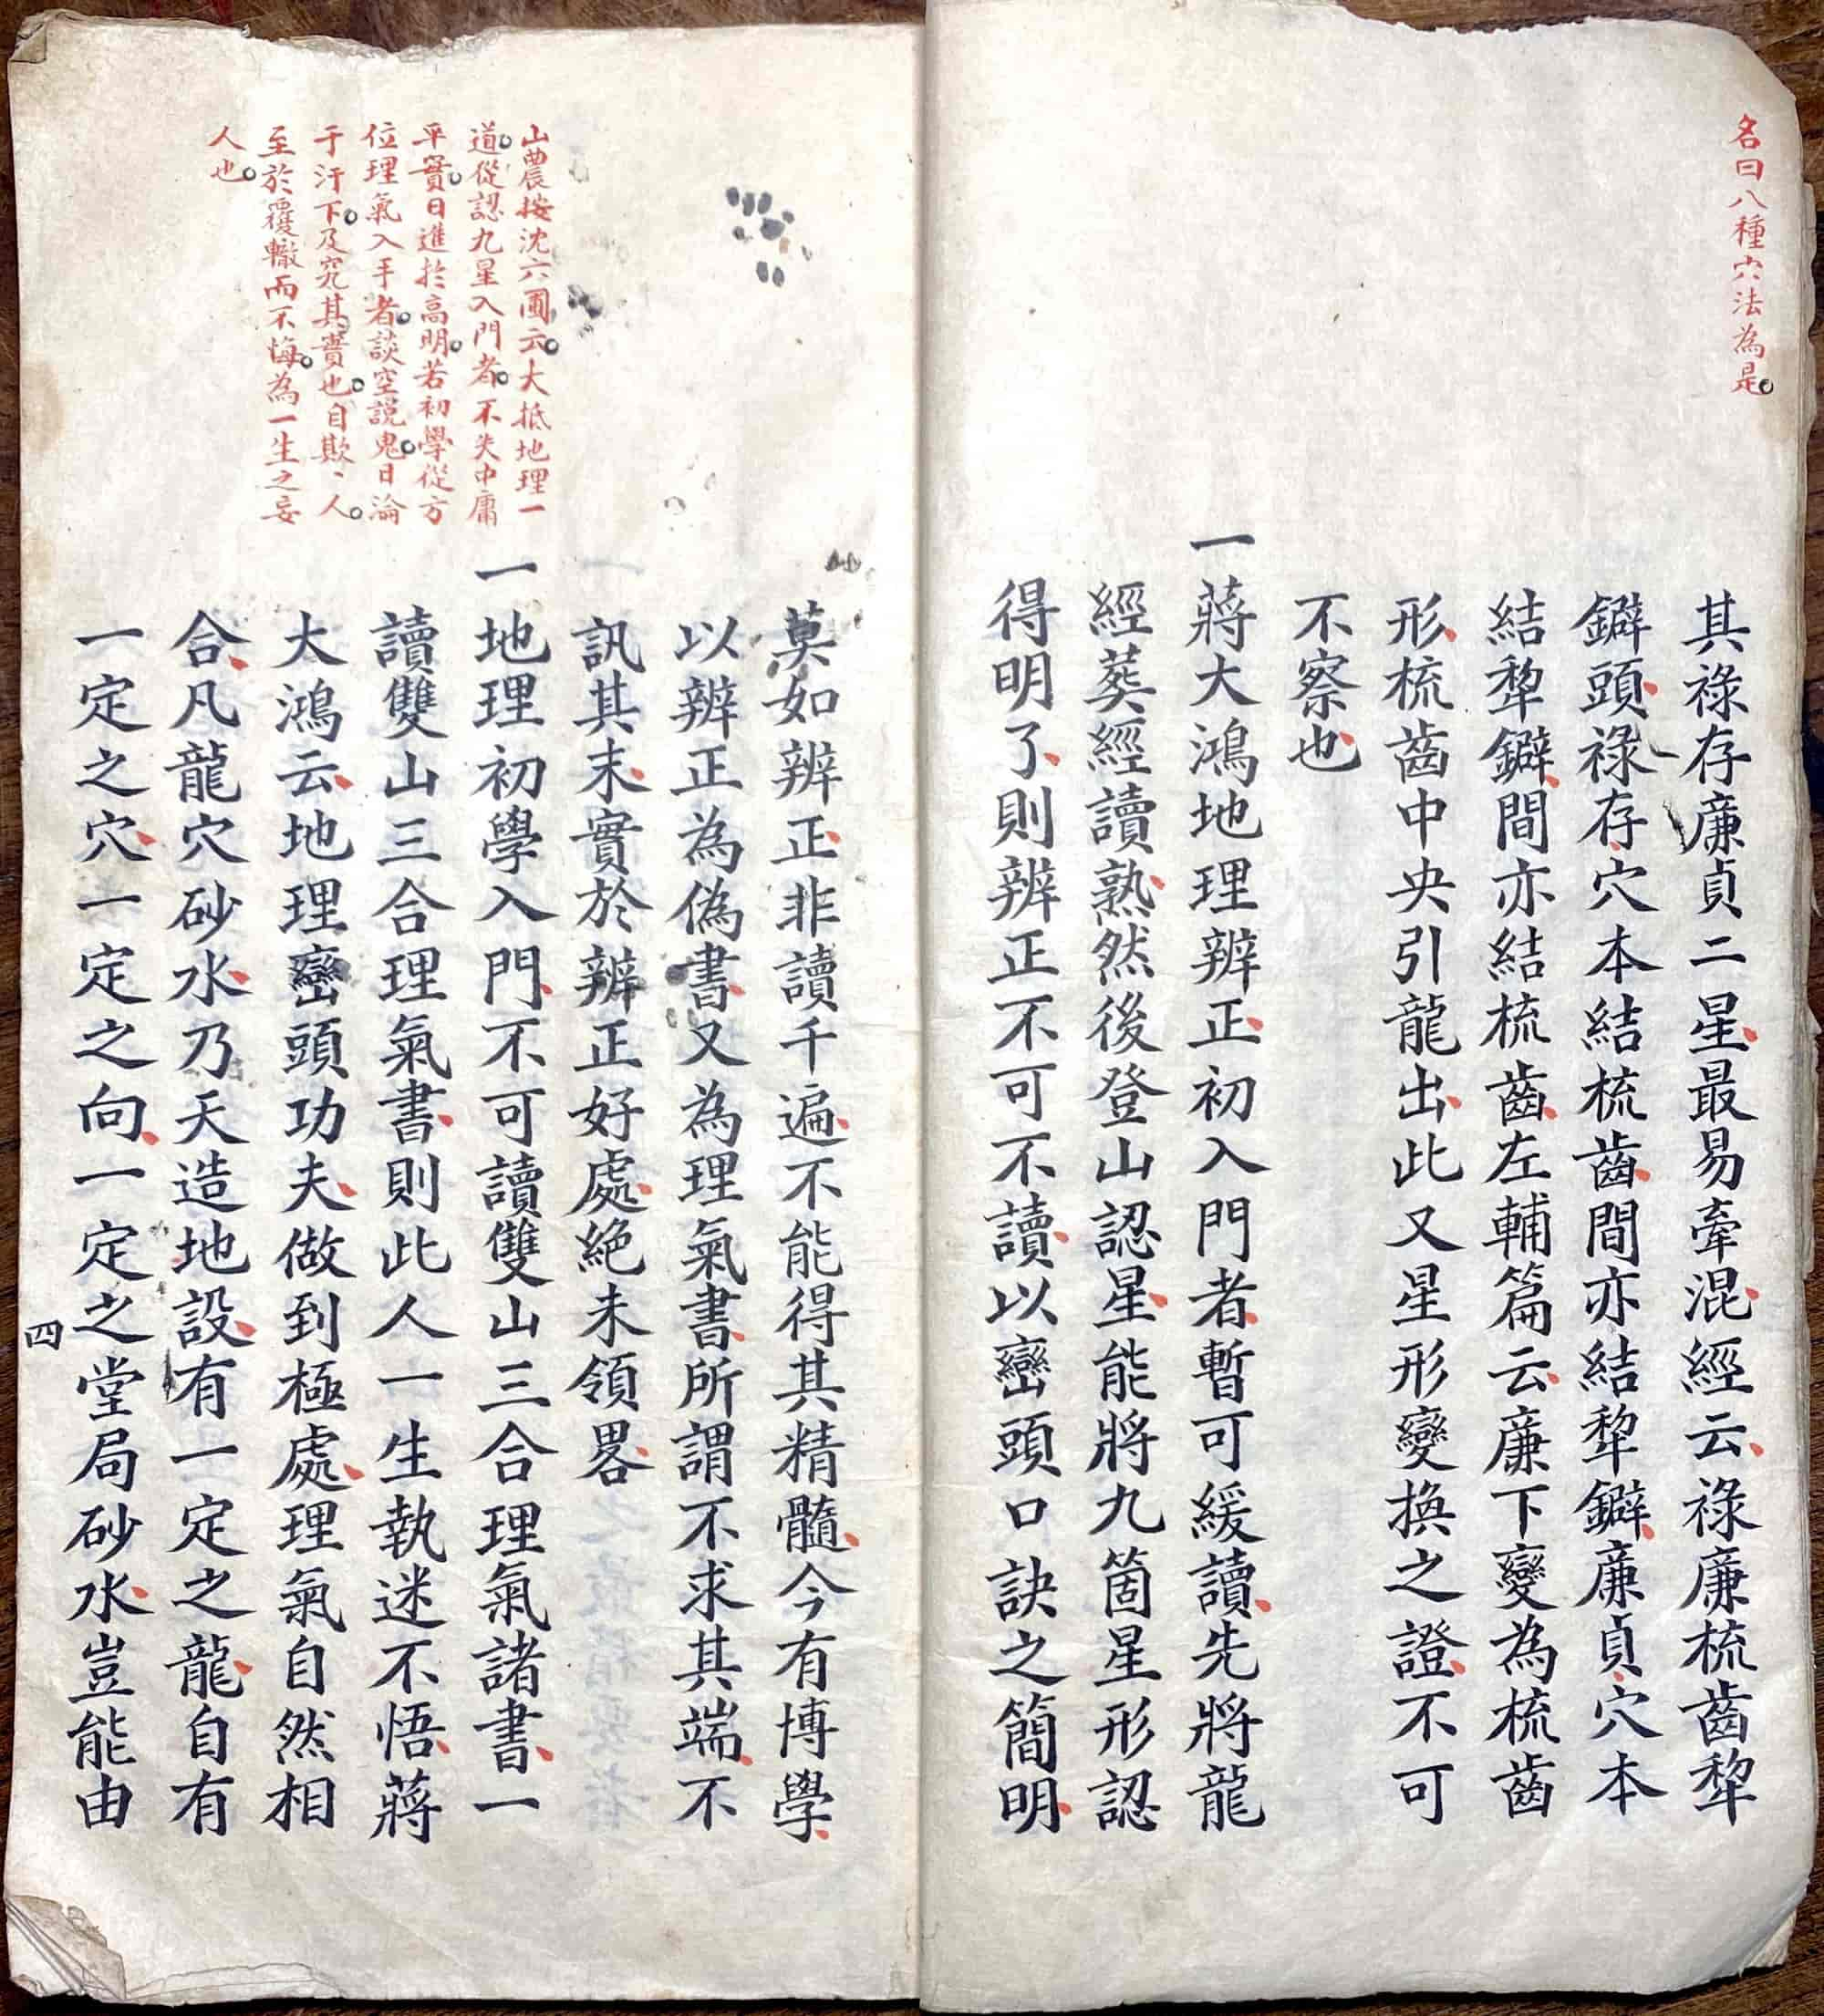 名曰八種穴法為是
其祿存廉貞二星最易牽混經云祿廉梳齒犂
鐴頭祿存穴本結梳齒間亦結犂鐴廉貞穴本
結犂鐴間亦結梳齒左輔篇云廉下變為梳齒
形梳齒中央引龍出此又星形變換之證不可
不察也
一蔣大鴻地理辨正初入門者暫可緩讀先將龍
經葬經讀熟然後登山認星能將九箇星形認
得明了則辨正不可不讀以巒頭口訣之簡明
山農按沈六圃云大抵地理一
道從認九星入門者不失中庸
平實日進於高明若初學從方
位理氣入手者談空說鬼日淪
于汙下及究其實也自欺、人
至於覆轍而不悔為一生之妄
人也
莫如辨正非讀千遍不能得其精髓今有博學
以辨正為偽書又為理氣書所謂不求其端不
訊其末實於辨正好處絕未領畧
一地理初學入門不可讀雙山三合理氣諸書一
讀雙山三合理氣書則此人一生執迷不悟蔣
大鴻云地理巒頭功夫做到極處理氣自然相
合凡龍穴砂水乃天造地設有一定之龍自有
一定之穴一定之向一定之堂局砂水豈能由
四